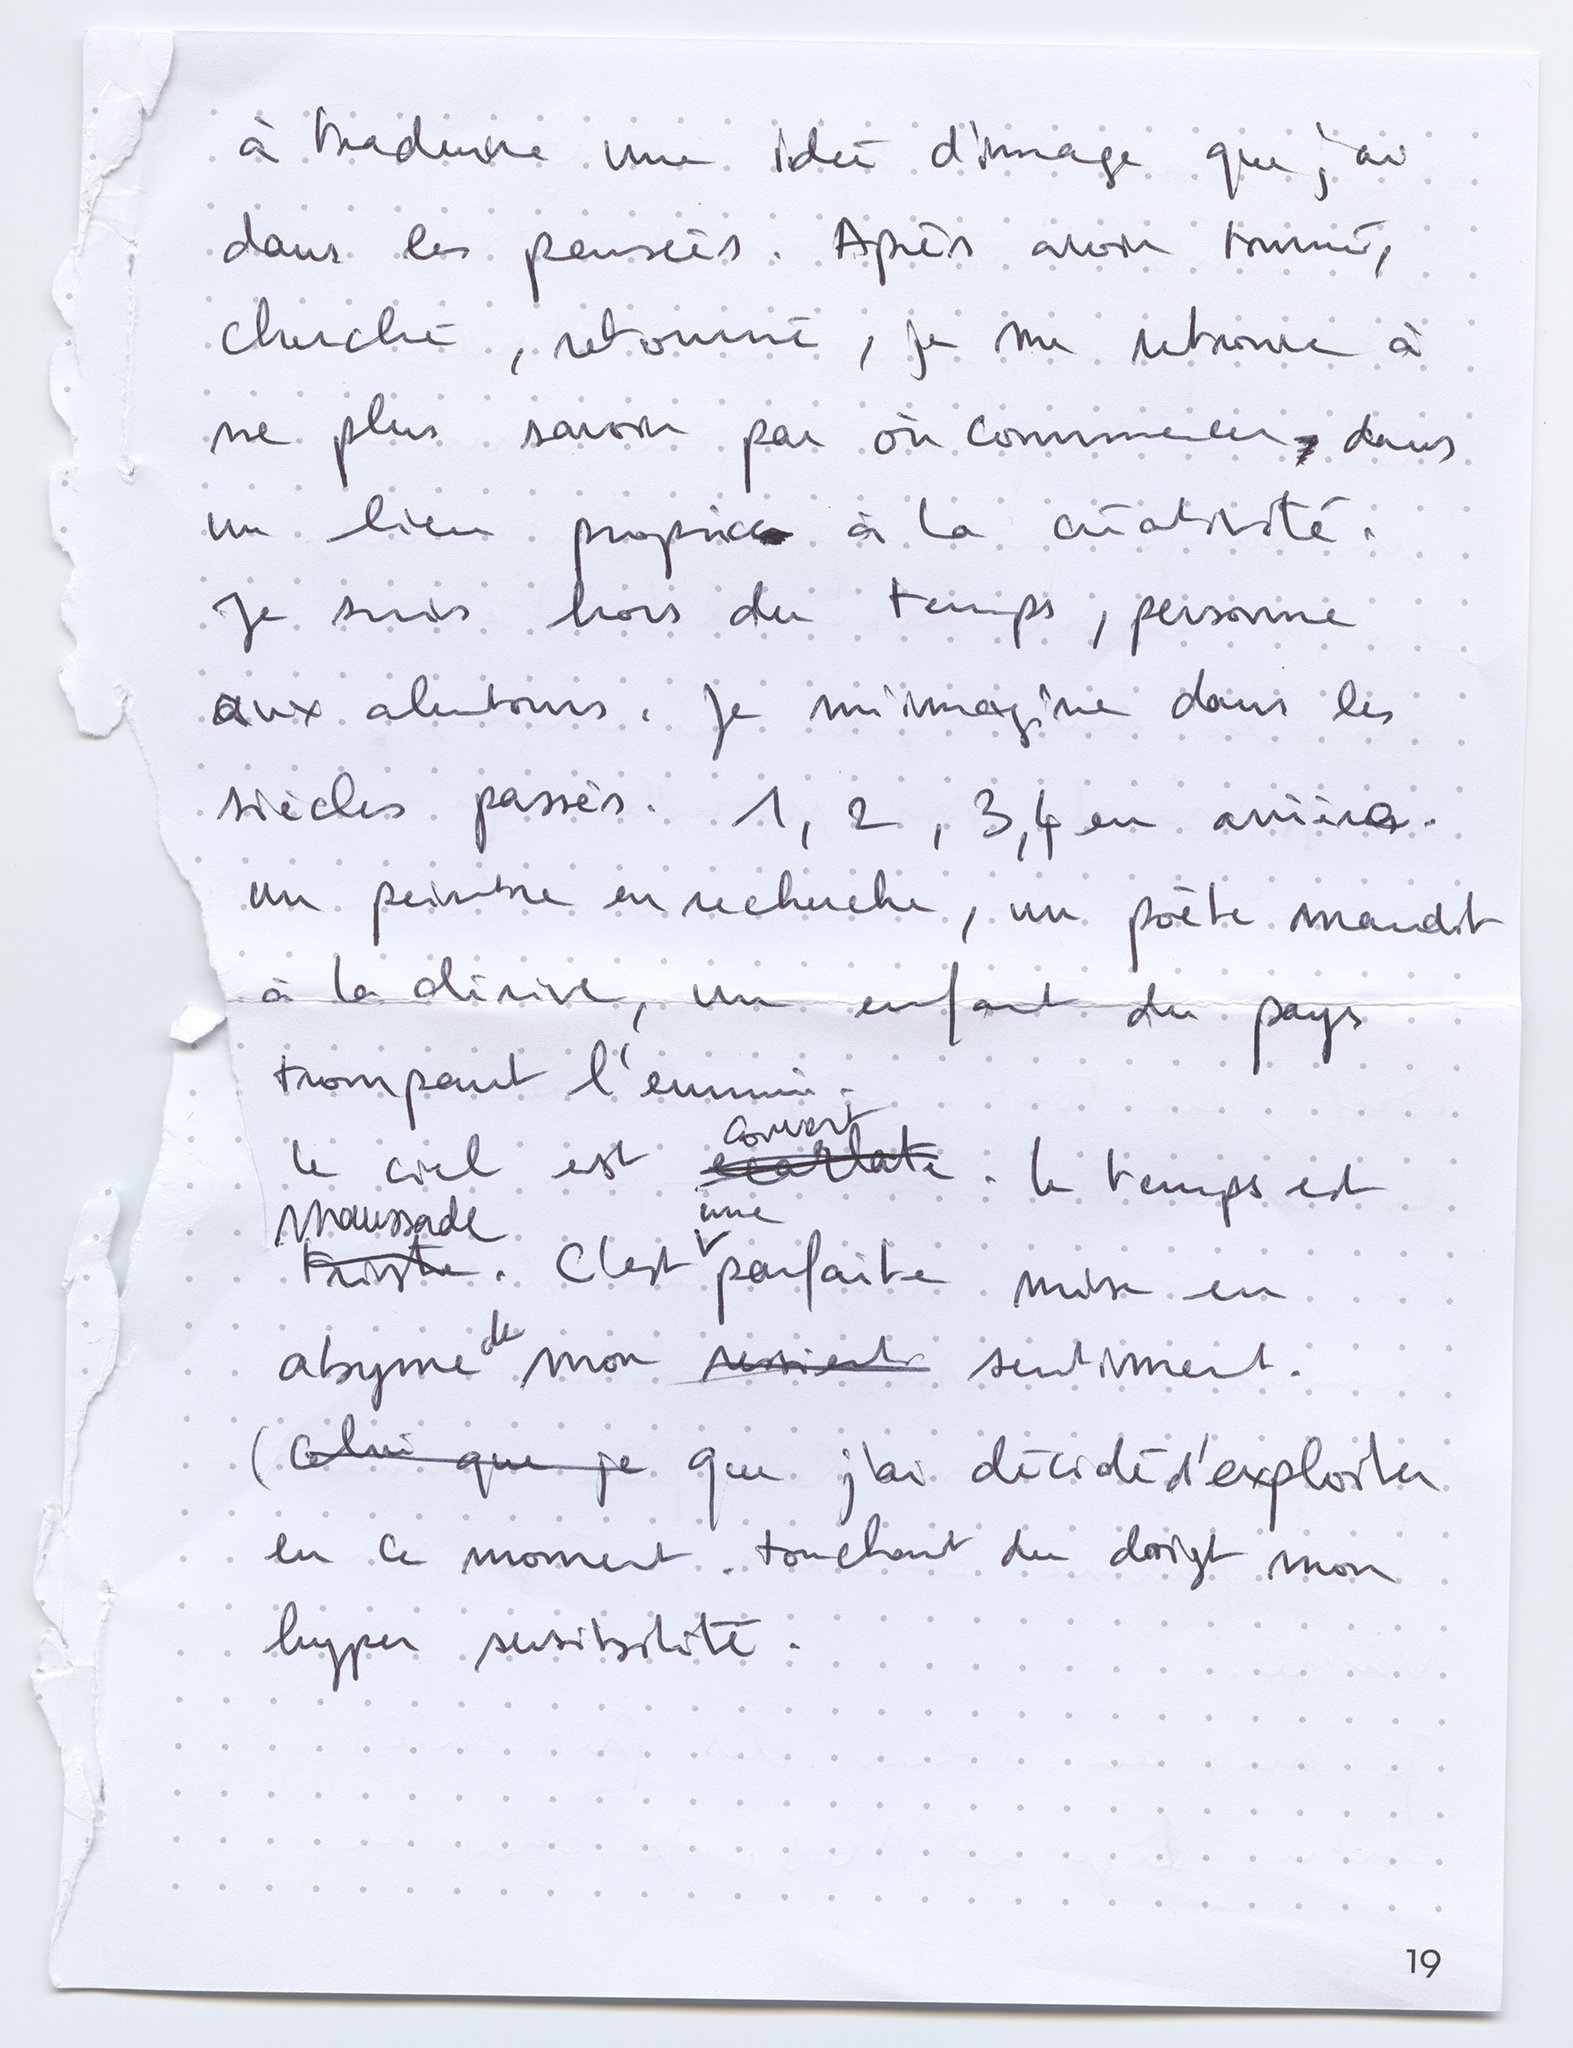 à traduire une idée d'image que j'ai
dans les pensées. Après avoir tourné,
cherché, retourné, je me retrouve à
ne plus savoir par où commencer, dans
un lieu propice à la créativité.
Je suis hors du temps, personne
aux alentours. Je m'imagine dans les
siècles passés. 1, 2, 3, 4 en arrière.
un peintre en recherche, un poète maudit
à la dérive, un enfant du pays
trompant l'ennui.
couvert
le ciel est écarlate. le temps est
maussade une
triste. C'est parfaite mise en
abyme de mon ressient sentiment.
(celui que je que j'ai décidé d'exploiter
en ce moment. touchant du doigt mon
hyper sensibilité.
19